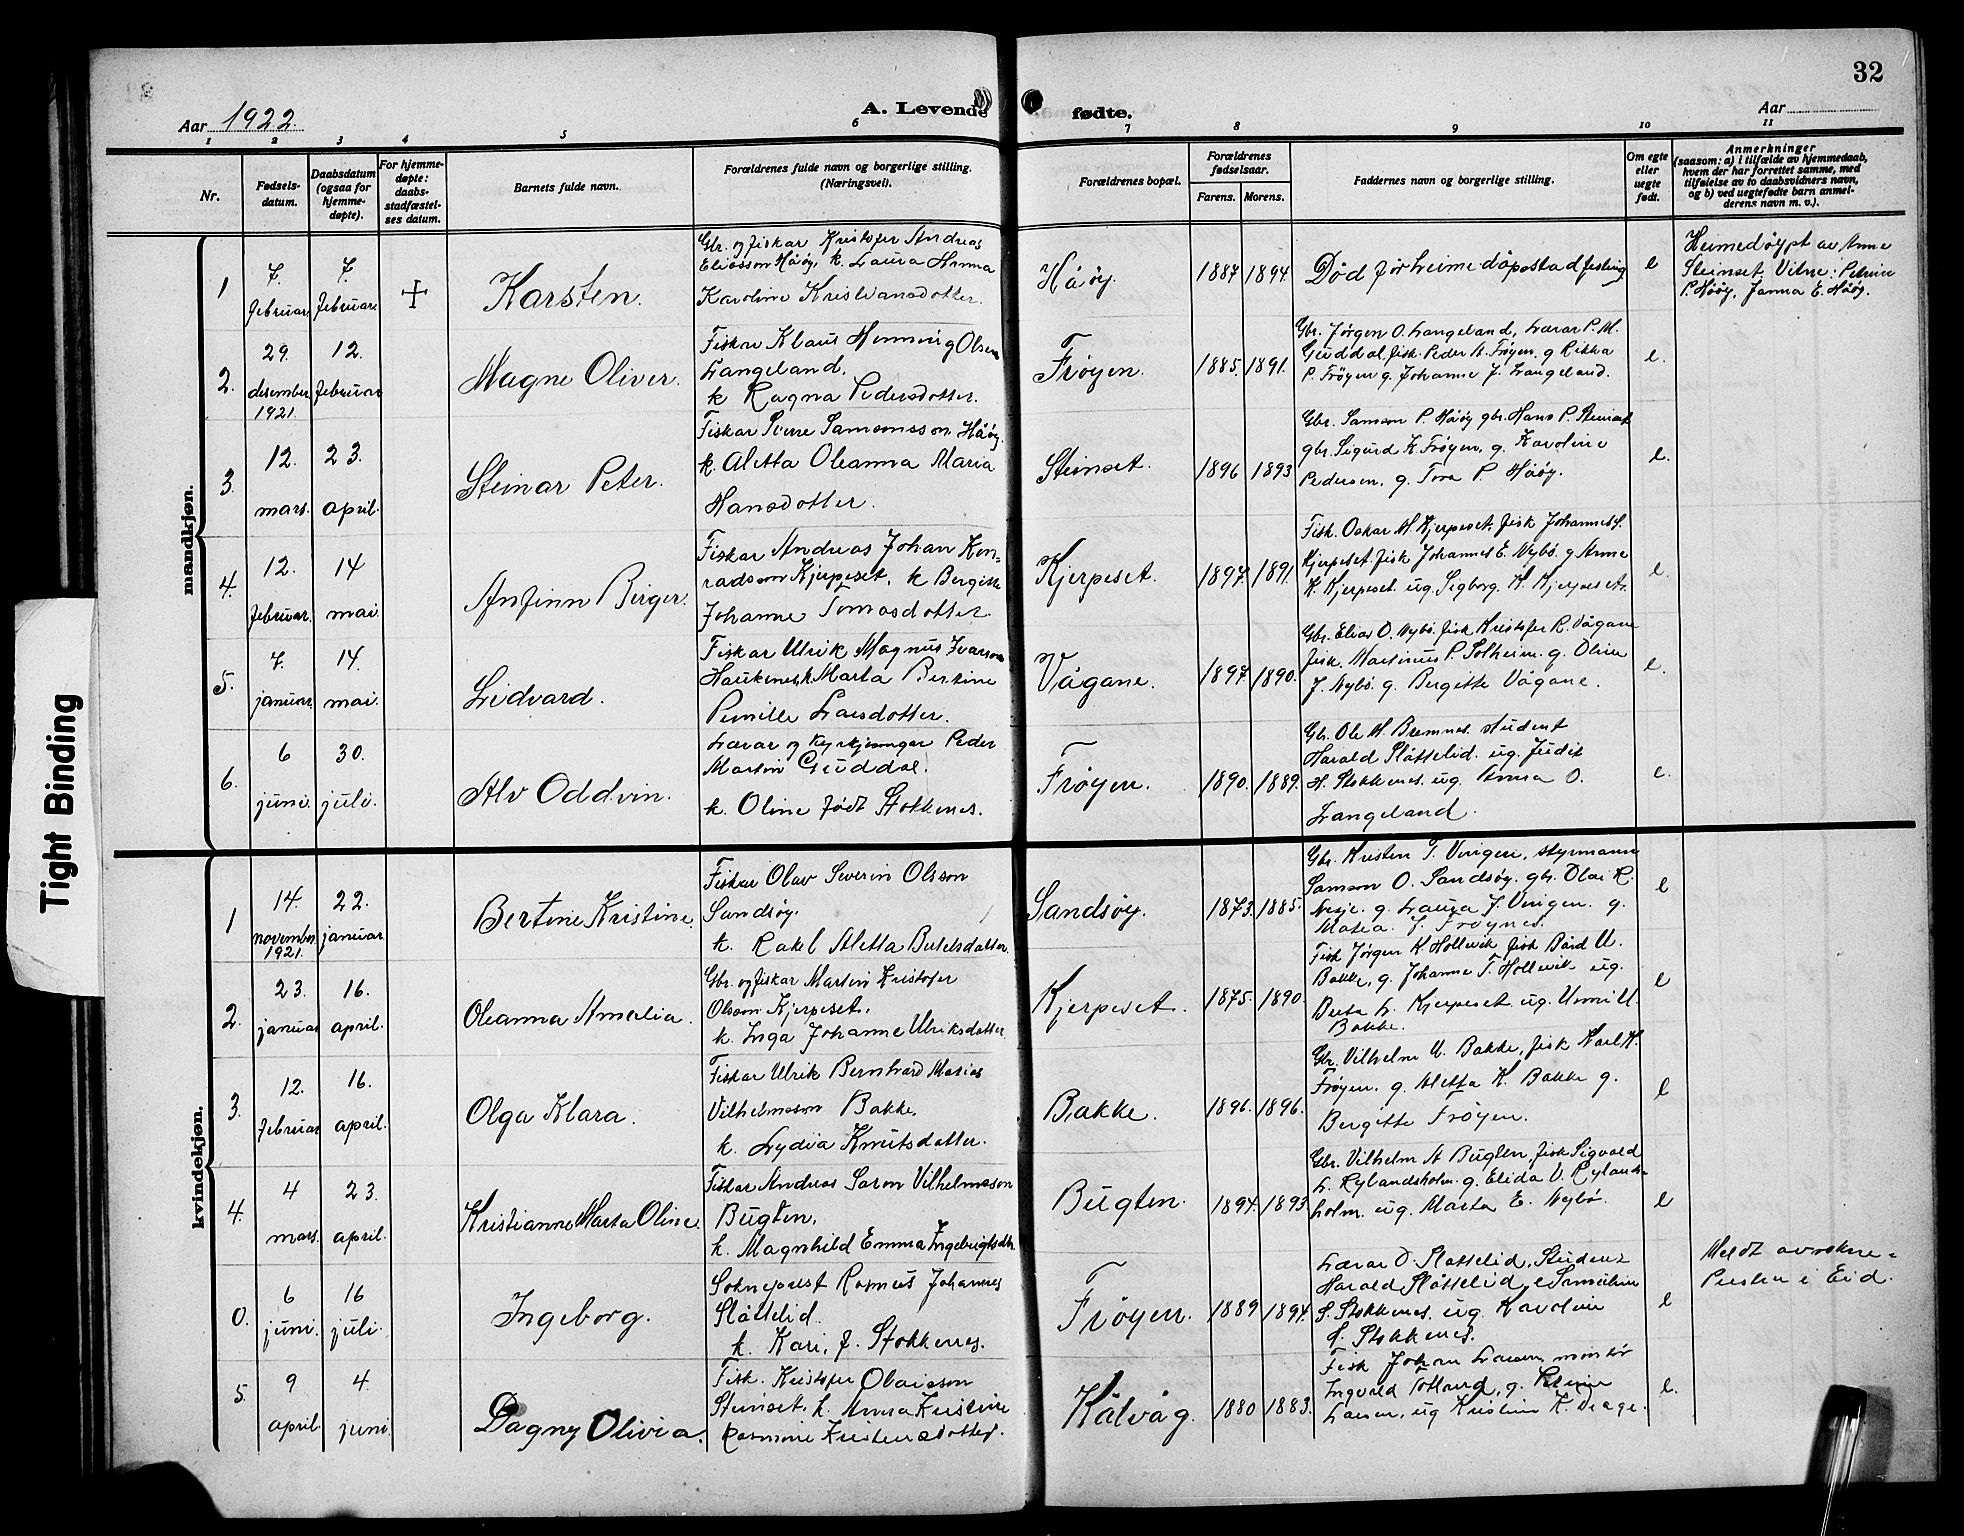 32
Aar 1922.
A. Levende fødte.
Aar
1 2 3 4 5 6 7 8 9 10 11
Nr.
Fødsels-
datum.
Daabsdatum
(ogsaa for
hjemme-
døpte).
For hjemme-
døpte:
daabs-
stadfæstel-
ses datum.
Barnets fulde navn.
Forældrenes fulde navn og borgerlige stilling.
(Næringsvei).
Forældrenes bopæl.
Forældrenes
fødselsaar.
Farens. Morens.
Faddernes navn og borgerlige stilling.
Om egte
eller
uegte
født.
Anmerkninger
(saasom: a) i tilfælde av hjemmedaab,
hvem der har forrettet samme, med
tilføielse av to daabsvidners navn,
og b) ved uegtefødte barn anmel-
derens navn m. v.).
mandkjøn.
1
7.
februar.
7.
februar.
+
Karsten.
Gbr. og fiskar Kristofer Andreas
Eliasson Håøy, k. Laura Hanna
Karoline Kristiansdotter.
Håøy.
1887 1894.
Død før heimedåpstadfesting
e
Heimedøypt av Anne
Steinset. Vitne: Petrine
P. Håøy, Janna E. Håøy.
2.
29.
desember
1921.
12.
februar
Magne Oliver.
Fiskar Klaus Henning Olsen
Langeland.
k Ragna Pedersdotter.
Frøyen.
1885. 1891.
Gbr. Jørgen O. Langeland, Lærar P. M.
Guddal, fisk. Peder A. Frøyen, g Rikka
P. Frøyen g. Johanne J. Langeland.
e.
3.
12.
mars.
23.
april.
Steinar Peter.
Fiskar Sverre Samsonsson Håøy.
k. Aletta Oleanna Maria
Hansdotter.
Steinset.
1896 1893
Gbr. Samson P. Håøy gbr. Hans P. Steinset
gbr. Sigurd K. Frøyen, g. Karoline
Pedersen, g. Tora P. Håøy.
e.
4.
12.
februar.
14
mai.
Anfinn Birger.
Fiskar Andreas Johan Kon-
radsson Kjerpeset, k Bergitte
Johanne Tomasdotter
Kjerpeset.
1897. 1891.
Fisk. Oskar M. Kjerpeset, fisk Johannes S.
Kjerpeset, fisk Johannes E. Nybø. g Anne
K. Kjerpeset. ug. Sigborg H. Kjerpeset.
e.
5.
7.
januar.
14.
mai.
Lidvard.
Fiskar Ulrik Magnus Ivarson
Haukenes, k. Marta Bertine
Pernille Larsdotter.
Vågane.
1897. 1890.
Gbr. Elias O. Nybø. fisk Kristofer R. Vågane
fisk. Martinus P. Solheim. g. Oline
J. Nybø g. Bergitte Vågane.
e.
6.
6
juni.
30.
juli.
Alv Oddvin.
Lærar og kyrkjesongar Peder
Martin Guddal.
k. Oline født Stokkenes.
Frøyen.
1890. 1889.
Gbr. Ole M. Bremnes. student
Harald Slåttelid. ug. Judit
H. Stokkenes. ug. Anna O.
Langeland.
e.
kvindekjøn.
1
14.
november
1921.
22.
januar.
Bertine Kristine.
Fiskar Olav Severin Olsson
Sandsøy.
k. Rakel Aletta
Sandsøy.
1873. 1885.
Gbr. Kristen T. Vingen, styrmann
Samson O. Sandsøy. gbr. Olai R.
Nesje. g. Laura J. Vingen. g.
Matea. J. Frøynes.
e
2.
23.
januar
16.
april.
Oleanna Amalia.
Gbr. og fiskar Martin Kristofer
Olsson Kjerpeset,
k. Inga Johanne Ulriksdotter
Kjerpeset.
1875. 1890.
Fisk Jørgen K Hollevik fisk Bård U.
Bakke, g. Johanne T. Hollevik ug.
Berta L. Kjerpeset, ug. Unni U.
Bakke.
e
3.
12.
februar
16.
april.
Olga Klara.
Fiskar Ulrik Bernhard Marius
Vilhelmsson Bakke,
k. Lydia Knutsdotter.
Bakke.
1896. 1896.
Gbr. Vilhelm U. Bakke, fisk Karl K.
Frøyen. g. Aletta K. Bakke g.
Bergitte Frøyen.
e
4.
4
mars.
23.
april.
Kristianne Marta Oline.
Fiskar Andreas Saron Vilhelmsson
Bugten,
k. Magnhild Emma Ingebrigtsdtr.
Bugten.
1894. 1893
Gbr. Vilhelm A Bugten, fisk Sigvald
L. Rylandsholm. g. Elida V. Rylands-
holm. ug. Marta E. Nybø.
e
0.
6
juni.
16
juli.
Ingeborg.
Sokneprest Rasmus Johannes
Slåttelid.
k. Kari, f. Stokkenes.
Frøyen.
1889 1894.
Lærar O. Slåttelid, Student
Harald Slåttelid,
S. Stokkenes. ug. Karoline
S. Stokkenes.
e
Meldt av sokne-
Presten i Eid.
5.
9
april
4.
juni.
Dagny Olivia.
Fisk. Kristofer Olaisson
Steinset. k. Anna Kristine
Rasmine Kristensdotter.
Kålvåg.
1880 1883.
Fisk Johan Larsen, montør
Ingvald Totland, g. Petrine
Larsen, ug Kristine K. Drage.
e.
Tight Binding